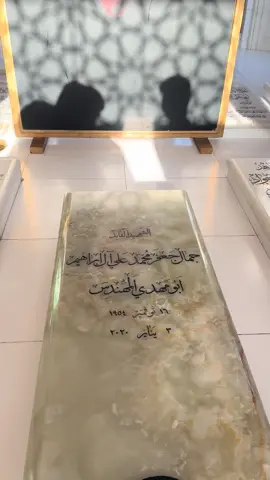 الشهيد القائد
جمال جعفر محمد علي آل إبراهيم
أبو مهدي المهندس
١٦ نوفمبر ١٩٥٤
٣ يناير ٢٠٢٠